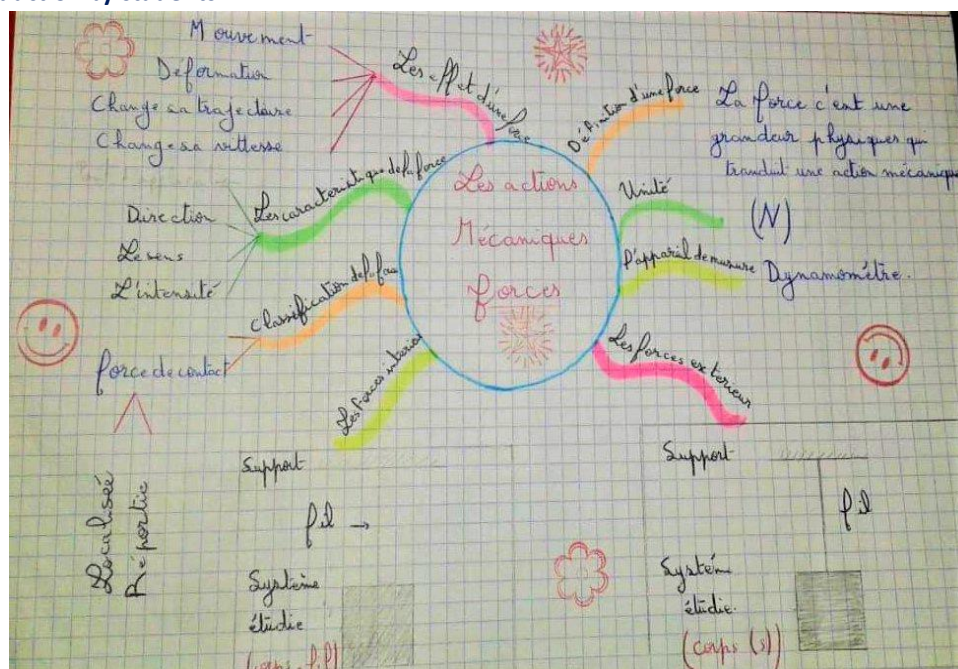 Mouvement
Déformation
Change sa trajectoire
Change sa vittesse
Les effet d'une force
Les caracteristique de la force
Direction
Le sens
L'intensité
Classification de la
force de contact
Localiseé
Répartie
Les forces interior
Les actions
Mécaniques
forces
Définition d'une force
La force c'est une
grandeur physiques qui
une action mécanique
Unité
(N)
l'appareil de
Dynamométre.
Les forces exterieur
Support
fil →
Système
étudie
Support
fil
Systémé
étudie.
(corps (s))